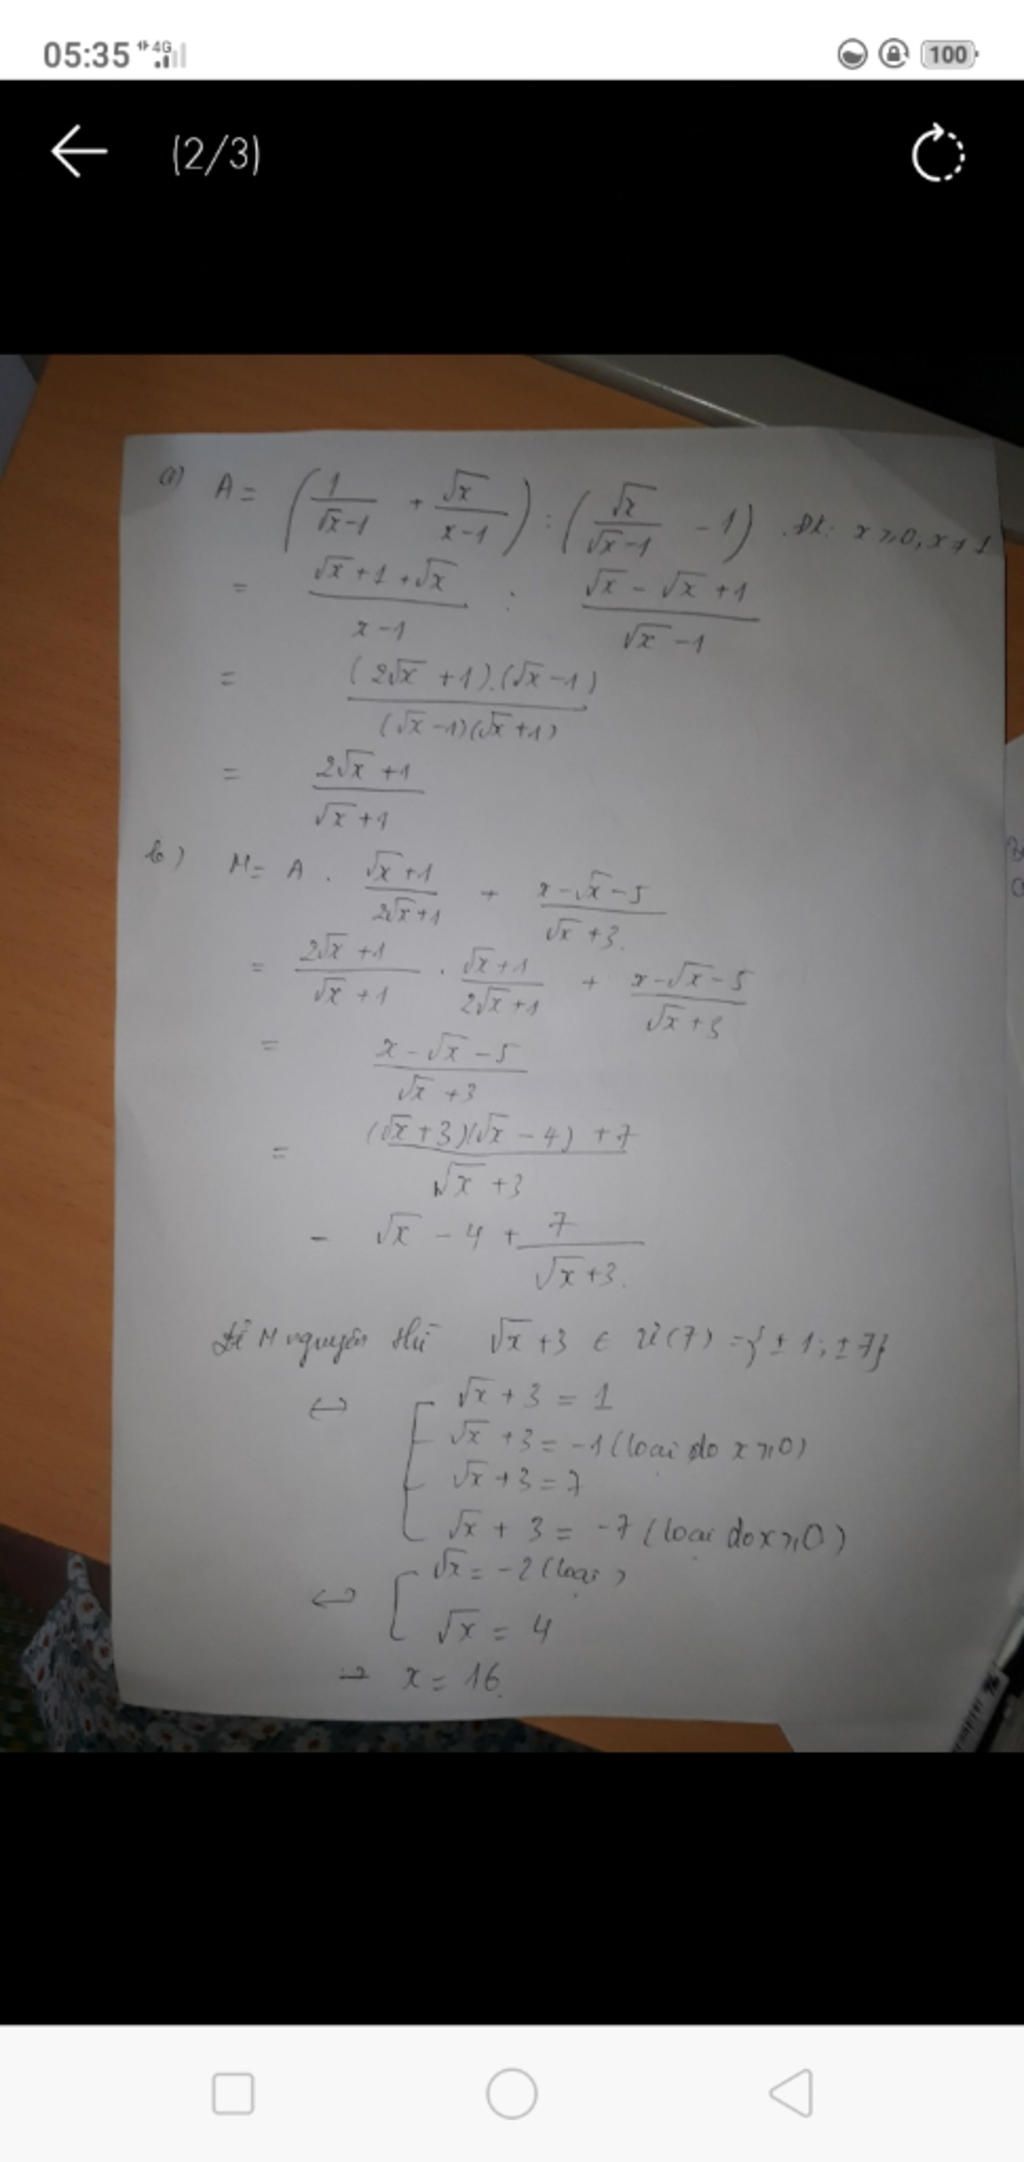 05:35 4G 100
(2/3)
a) A = (1/(√x-1) + √x/(x-1)) : (√x/(√x-1) - 1) . Đk: x ≥ 0, x ≠ 1
= (√x+1+√x)/(x-1) : (√x-√x+1)/(√x-1)
= ((2√x+1).(√x-1))/((√x-1)(√x+1))
= (2√x+1)/(√x+1)
b) M = A . (√x+1)/(2√x+1) + (x-√x-5)/(√x+3)
= (2√x+1)/(√x+1) . (√x+1)/(2√x+1) + (x-√x-5)/(√x+3)
= (x-√x-5)/(√x+3)
= ((√x+3)(√x-4)+7)/(√x+3)
= √x - 4 + 7/(√x+3)
Để M nguyên thì √x+3 ∈ Ư(7) = {±1; ±7}
⇔ [ √x+3 = 1
√x+3 = -1 (loại do x ≥ 0)
√x+3 = 7
√x+3 = -7 (loại do x ≥ 0)
⇔ [ √x = -2 (loại)
√x = 4
⇒ x = 16.